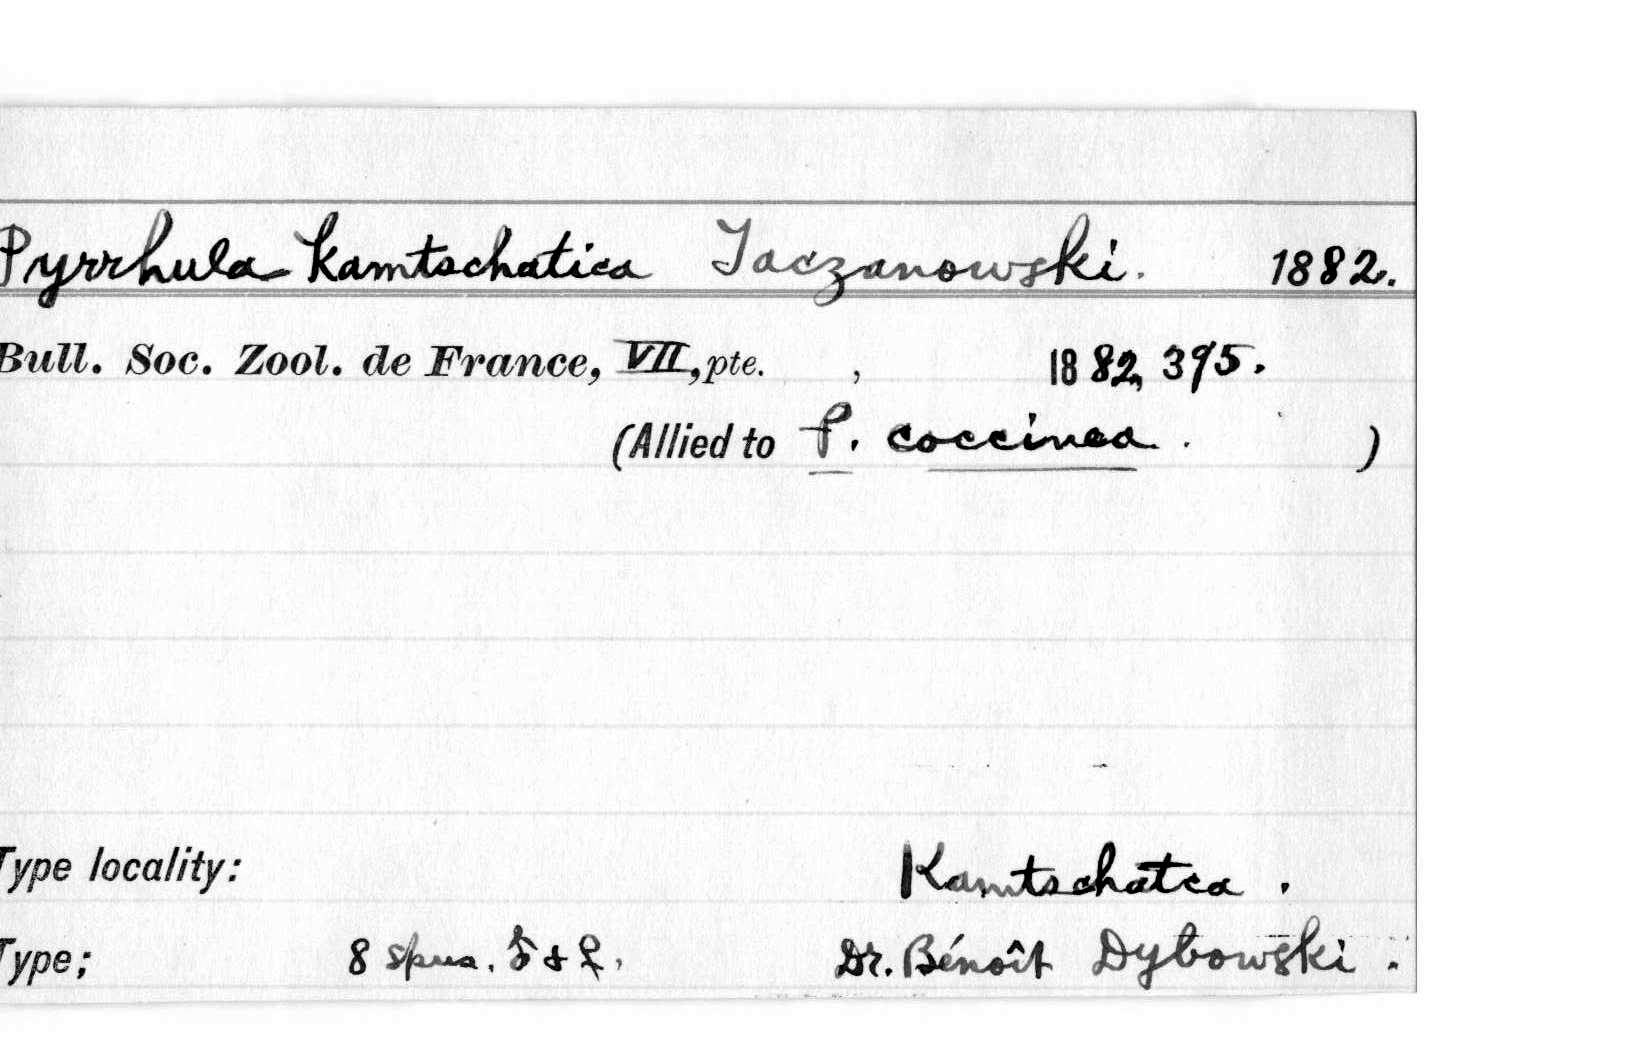 Pyrrhula kamtschatica Taczanowski. 1882.
Bull. Soc. Zool. de France, VII, pte. , 1882, 395.
(Allied to P. coccinea. )
Type locality: Kamtschatca.
Type; 8 spns. ♂ & ♀. Dr. Bénoît Dybowski.